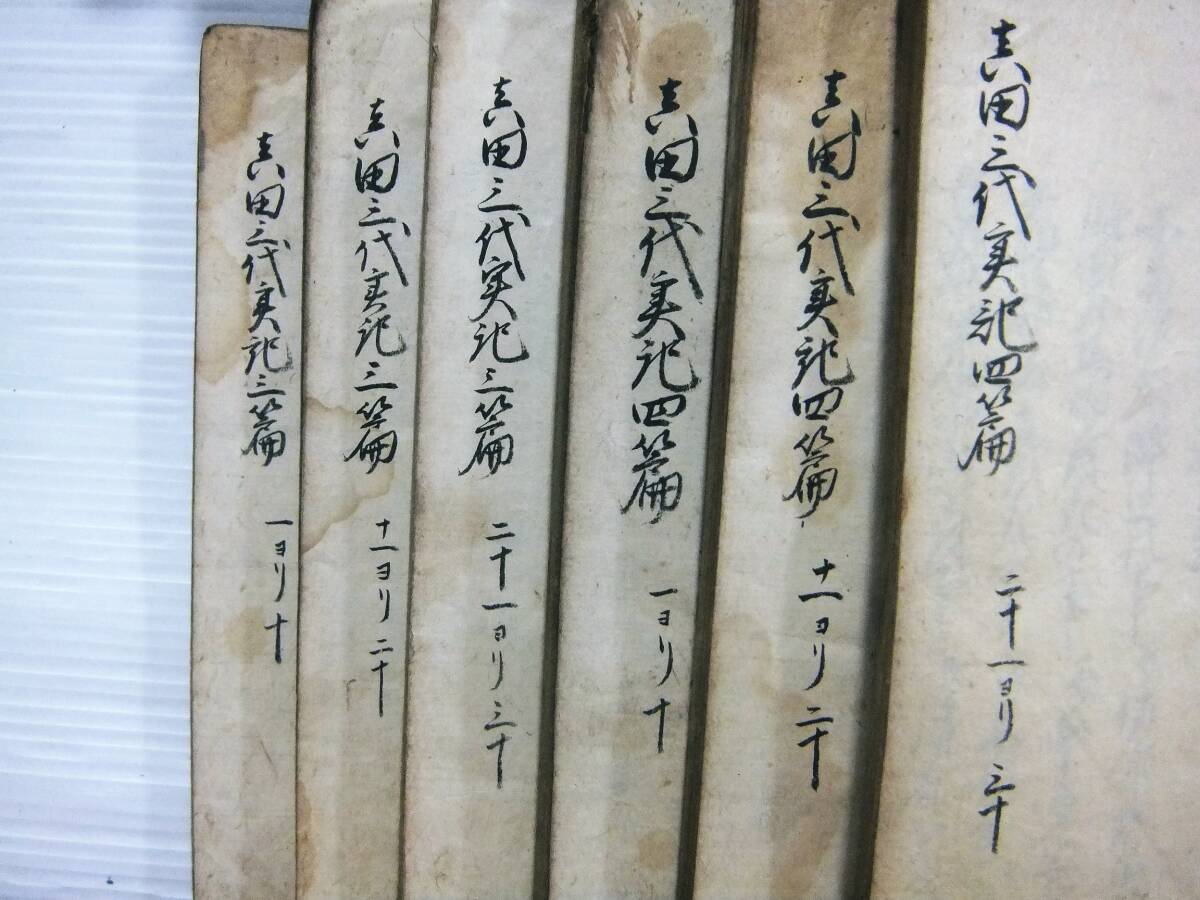 真田三代実記四篇 二十一ヨリ三十
真田三代実記四篇 十一ヨリ二十
真田三代実記四篇 一ヨリ十
真田三代実記三篇 二十一ヨリ三十
真田三代実記三篇 十一ヨリ二十
真田三代実記三篇 一ヨリ十